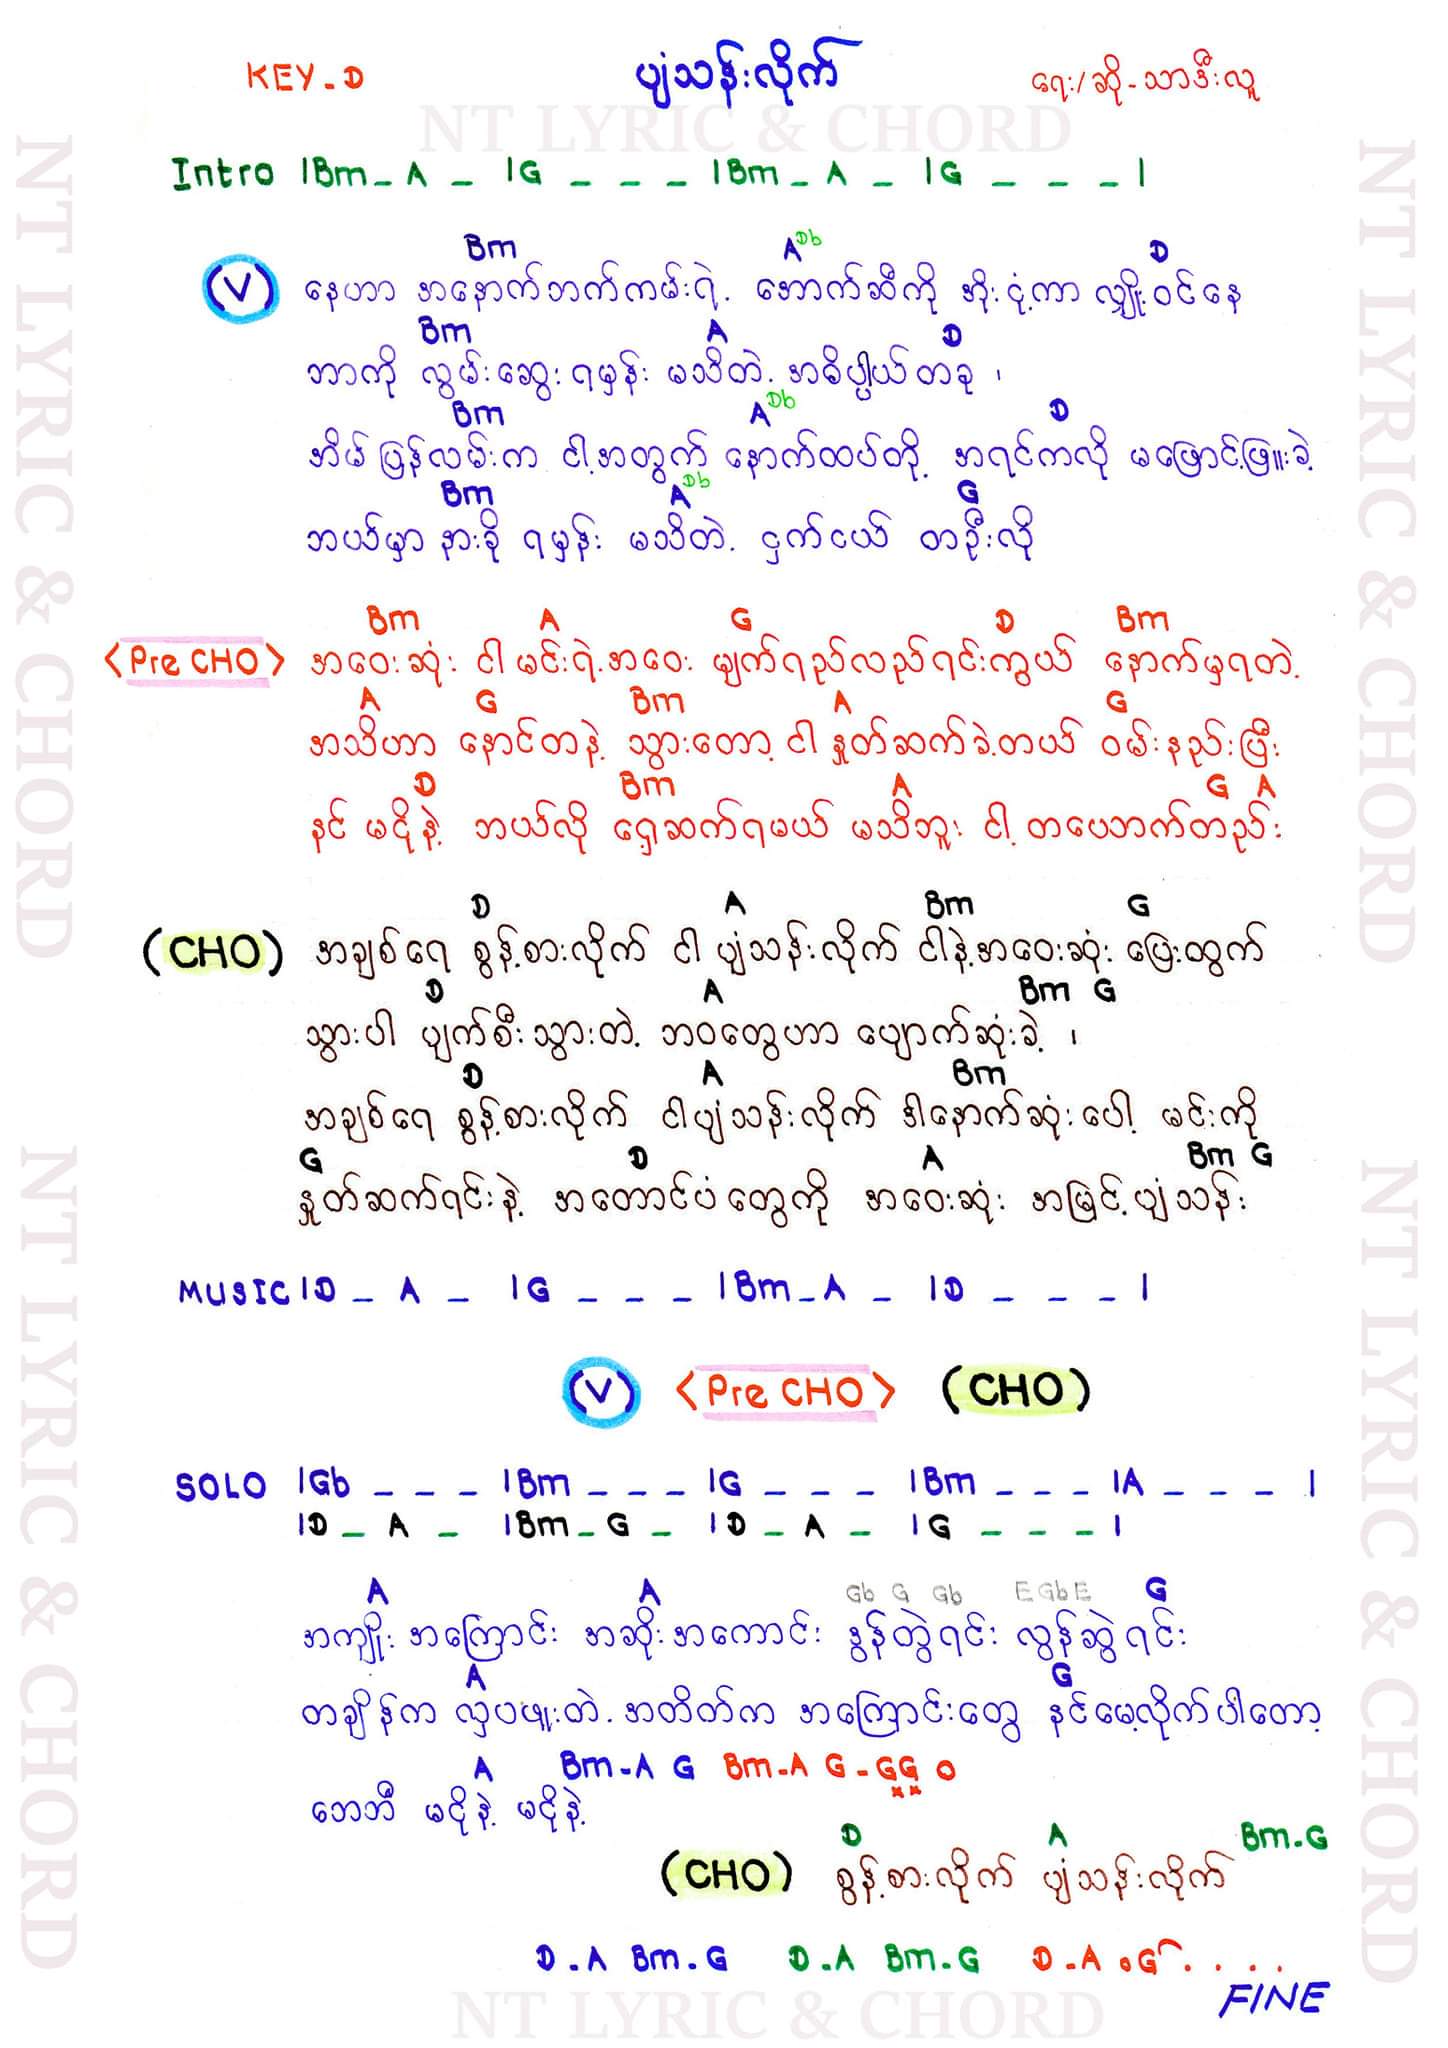 KEY-D ပျံသန်းလိုက် ရေး/ဆို-သာဒီးလူ
NT LYRIC & CHORD
Intro |Bm - A - |G - - - |Bm - A - |G - - - |
Bm A Db D
(V) နေဟာ အနောက်ဘက်ကမ်းရဲ့ အောက်ဆီကို အိုးငုံ့ကာ လျှိုးဝင်နေ
Bm A D
ဘာကို လွမ်းဆွေးရမှန်း မသိတဲ့ အဓိပ္ပါယ်တခု ၊
Bm A Db D
အိမ်ပြန်လမ်းက ငါ့အတွက် နောက်ထပ်တို့ အရင်ကလို မဖြောင့်ဖြူးခဲ့
Bm A Db G
ဘယ်မှာ နားခို ရမှန်း မသိတဲ့ ငှက်ငယ် တဦးလို
Bm A G D Bm
<Pre CHO> အဝေးဆုံး ငါ မင်းရဲ့အဝေး မျက်ရည်လည်ရင်းကွယ် နောက်မှရတဲ့
A G Bm A G
အသိဟာ နောင်တနဲ့ သွားတော့ ငါ နှုတ်ဆက်ခဲ့တယ် ဝမ်းနည်းပြီး
D Bm A G A
နင် မငိုနဲ့ ဘယ်လို ရှေ့ဆက်ရမယ် မသိဘူး ငါ့ တပေဘက်တည်း
D A Bm G
(CHO) အချစ်ရေ စွန့်စားလိုက် ငါ ပျံသန်းလိုက် ငါနဲ့အဝေးဆုံး ပြေးထွက်
D A Bm G
သွားပါ ပျက်စီးသွားတဲ့ ဘဝတွေဟာ ပျောက်ဆုံးခဲ့ ၊
D A Bm
အချစ်ရေ စွန့်စားလိုက် ငါပျံသန်းလိုက် ဒါနောက်ဆုံးပေါ့ မင်းကို
G D A Bm G
နှုတ်ဆက်ရင်းနဲ့ အတောင်ပံတွေကို အဝေးဆုံး အမြင့်ပျံသန်း
MUSIC |D - A - |G - - - |Bm - A - |D - - - |
(V) <Pre CHO> (CHO)
SOLO |Gb - - - |Bm - - - |G - - - |Bm - - - |A - - - |
|D - A - |Bm - G - |D - A - |G - - - |
A A Gb G Gb E Gb E G
အကျိုး အကြောင်း အဆိုးအကောင်း ဒွန်တွဲရင်း လွန်ဆွဲရင်း
A G
တချိန်က လှပဖူးတဲ့ အတိတ်က အကြောင်းတွေ နင်မေ့လိုက်ပါတော့
A Bm-A G Bm-A G-GG 0
ဘေဘီ မငိုနဲ့ မငိုနဲ့
D A Bm-G
(CHO) စွန့်စားလိုက် ပျံသန်းလိုက်
D-A Bm-G D-A Bm-G D-A.G....
FINE
NT LYRIC & CHORD
NT LYRIC & CHORD
NT LYRIC & CHORD
NT LYRIC & CHORD
NT LYRIC & CHORD